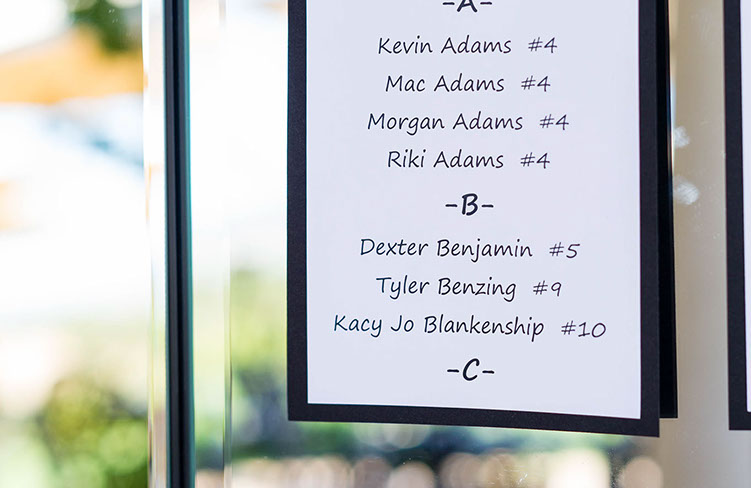 -A-
Kevin Adams #4
Mac Adams #4
Morgan Adams #4
Riki Adams #4
-B-
Dexter Benjamin #5
Tyler Benzing #9
Kacy Jo Blankenship #10
-C-